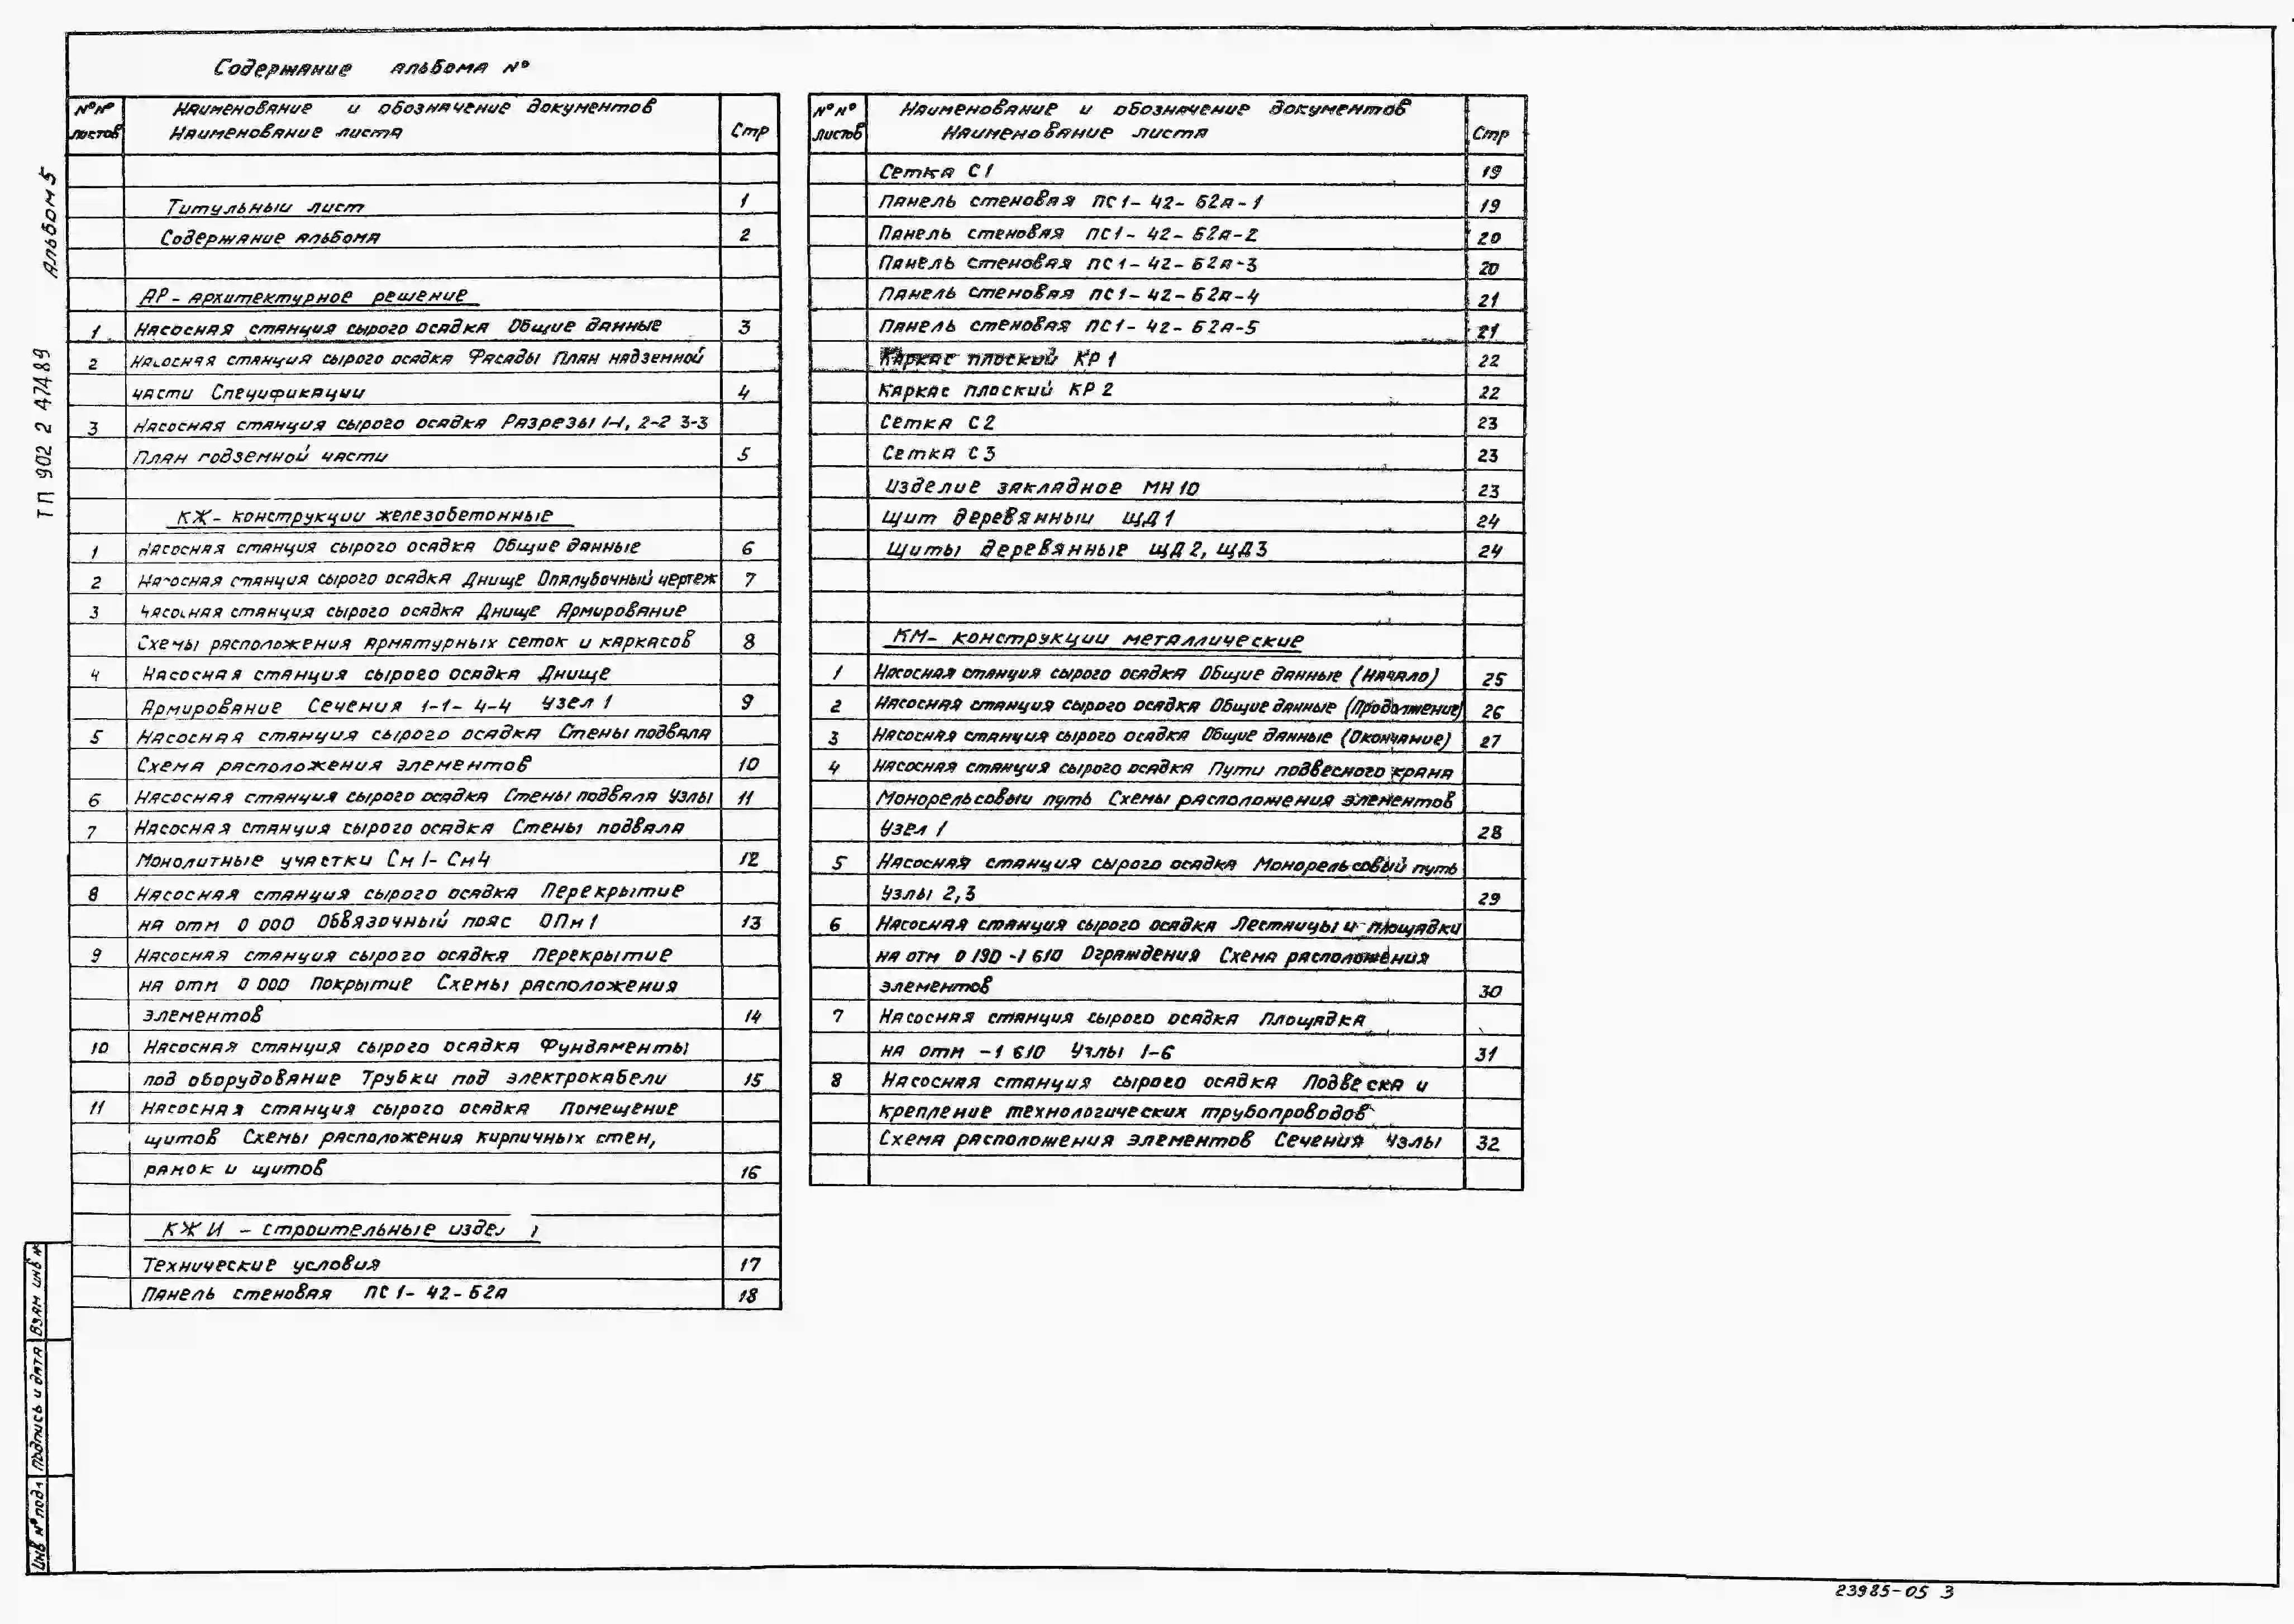 Содержание альбома №
№№ листов
Наименование и обозначение документов
Наименование листа
Стр
Титульный лист 1
Содержание альбома 2
АР - архитектурное решение
1 Насосная станция сырого осадка Общие данные 3
2 Насосная станция сырого осадка Фасады План надземной
части Спецификации 4
3 Насосная станция сырого осадка Разрезы 1-1, 2-2 3-3
План подземной части 5
КЖ - конструкции железобетонные
1 Насосная станция сырого осадка Общие данные 6
2 Насосная станция сырого осадка Днище Опалубочный чертеж 7
3 Насосная станция сырого осадка Днище Армирование
Схемы расположения арматурных сеток и каркасов 8
4 Насосная станция сырого осадка Днище
Армирование Сечения 1-1- 4-4 Узел 1 9
5 Насосная станция сырого осадка Стены подвала
Схема расположения элементов 10
6 Насосная станция сырого осадка Стены подвала Узлы 11
7 Насосная станция сырого осадка Стены подвала
Монолитные участки См 1- См4 12
8 Насосная станция сырого осадка Перекрытие
на отм 0 000 Обвязочный пояс ОПм 1 13
9 Насосная станция сырого осадка Перекрытие
на отм 0 000 Покрытие Схемы расположения
элементов 14
10 Насосная станция сырого осадка Фундаменты
под оборудование Трубки под электрокабели 15
11 Насосная станция сырого осадка Помещение
щитов Схемы расположения кирпичных стен,
рамок и щитов 16
КЖИ - строительные
Технические условия 17
Панель стеновая ПС 1- 42- Б2а 18
№№ листов
Наименование и обозначение документов
Наименование листа
Стр
Сетка С1 19
Панель стеновая ПС1- 42- Б2а-1 19
Панель стеновая ПС1- 42- Б2а-2 20
Панель стеновая ПС1- 42- Б2а-3 20
Панель стеновая ПС1- 42- Б2а-4 21
Панель стеновая ПС1- 42- Б2а-5 21
Каркас плоский КР 1 22
Каркас плоский КР 2 22
Сетка С2 23
Сетка С3 23
Изделие закладное МН 10 23
Щит деревянный ЩД1 24
Щиты деревянные ЩД2, ЩД3 24
КМ- конструкции металлические
1 Насосная станция сырого осадка Общие данные (Начало) 25
2 Насосная станция сырого осадка Общие данные (Продолжение) 26
3 Насосная станция сырого осадка Общие данные (Окончание) 27
4 Насосная станция сырого осадка Пути подвесного крана
Монорельсовый путь Схемы расположения элементов
Узел 1 28
5 Насосная станция сырого осадка Монорельсовый путь
Узлы 2,3 29
6 Насосная станция сырого осадка Лестницы и площадки
на отм 0 190 -1 610 Ограждения Схема расположения
элементов 30
7 Насосная станция сырого осадка Площадка
на отм -1 610 Узлы 1-6 31
8 Насосная станция сырого осадка Подвеска и
крепление технологических трубопроводов
Схема расположения элементов Сечения Узлы 32
Альбом 5
ТП 902 2 474 89
Взам инв №
Подпись и дата
Инв № подл
23985-05 3